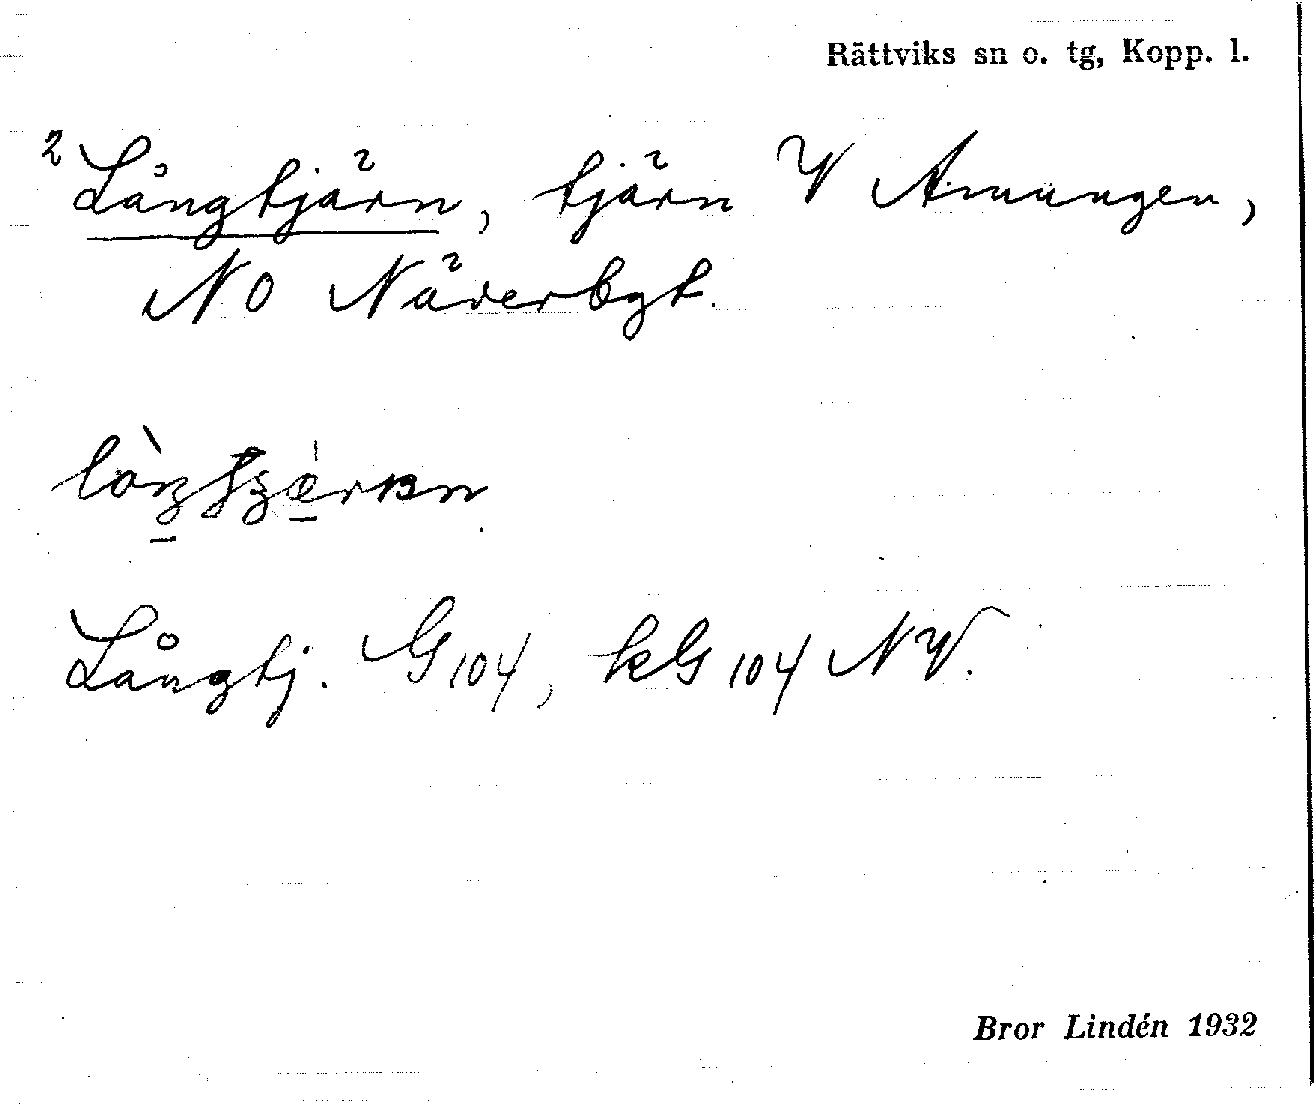 Rättviks sn o. tg, Kopp. l.
2 Långtjärn, tjärn V Amungen,
NO Näverbgt.
Långtj. G 104, kG 104 NV.
Bror Lindén 1932